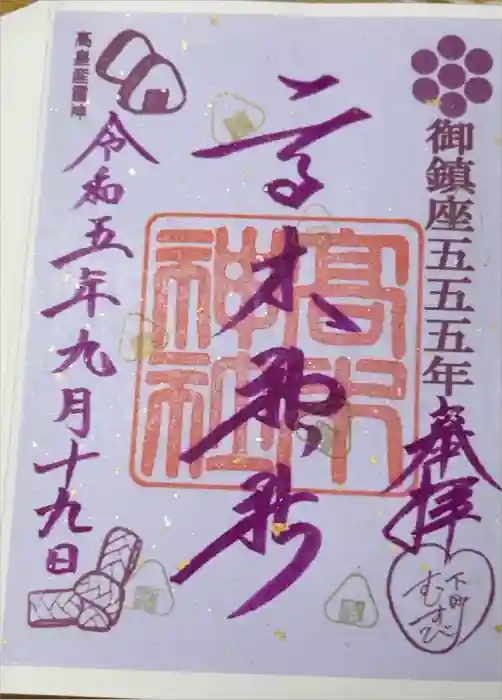 御鎮座五五五年
奉拝
下町
むすび
高木神社
高木神社
高皇産霊神
令和五年九月十九日